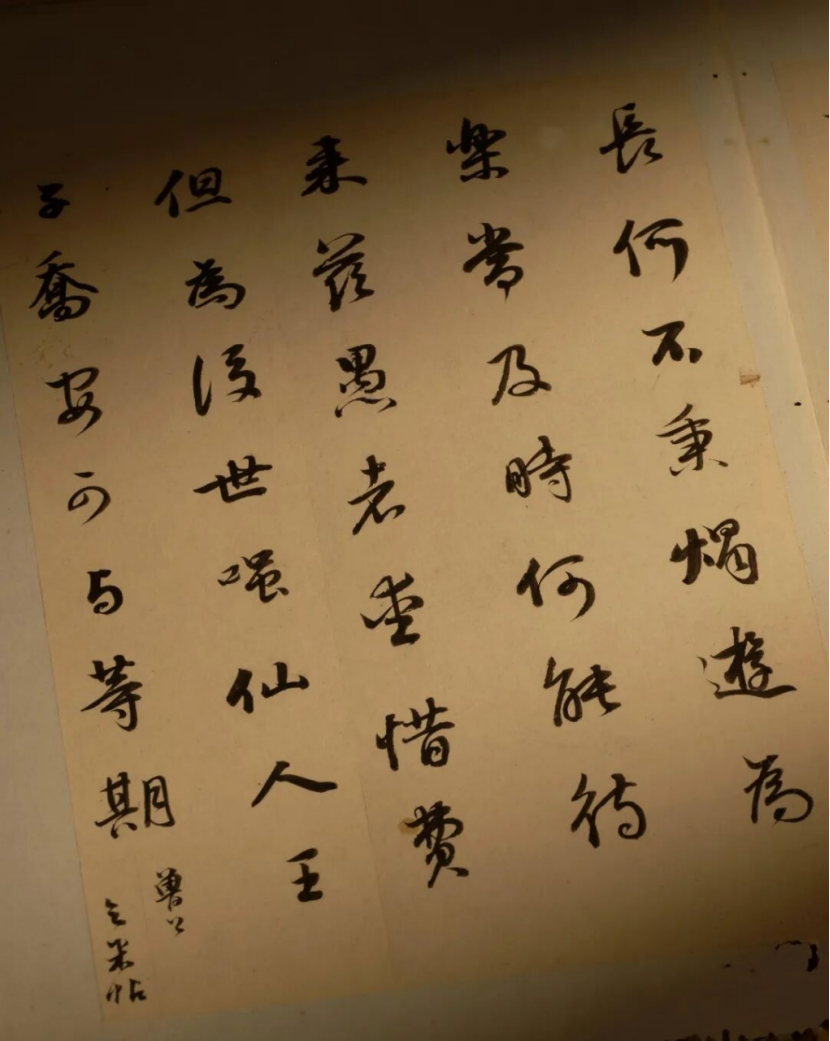 長何不秉燭遊為
樂當及時何能待
来茲愚者愛惜費
但為後世嗤仙人王
子喬安可与等期
魯公
乞米帖